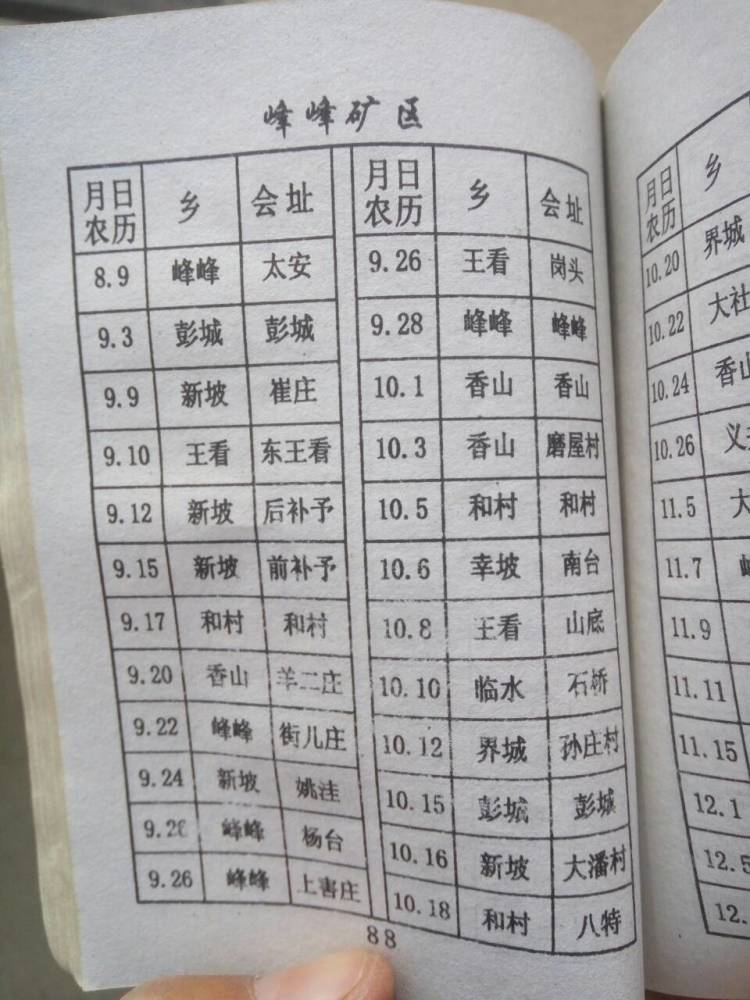 峰峰矿区
月日农历 乡 会址
8.9 峰峰 太安
9.3 彭城 彭城
9.9 新坡 崔庄
9.10 王看 东王看
9.12 新坡 后补予
9.15 新坡 前补予
9.17 和村 和村
9.20 香山 羊二庄
9.22 峰峰 街儿庄
9.24 新坡 姚洼
9.26 峰峰 杨台
9.26 峰峰 上害庄
月日农历 乡 会址
9.26 王看 岗头
9.28 峰峰 峰峰
10.1 香山 香山
10.3 香山 磨屋村
10.5 和村 和村
10.6 幸坡 南台
10.8 王看 山底
10.10 临水 石桥
10.12 界城 孙庄村
10.15 彭城 彭城
10.16 新坡 大潘村
10.18 和村 八特
88
月日农历 乡
10.20 界城
10.22 大社
10.24 香山
10.26 义
11.5 大
11.7
11.9
11.11
11.15
12.1
12.5
12.